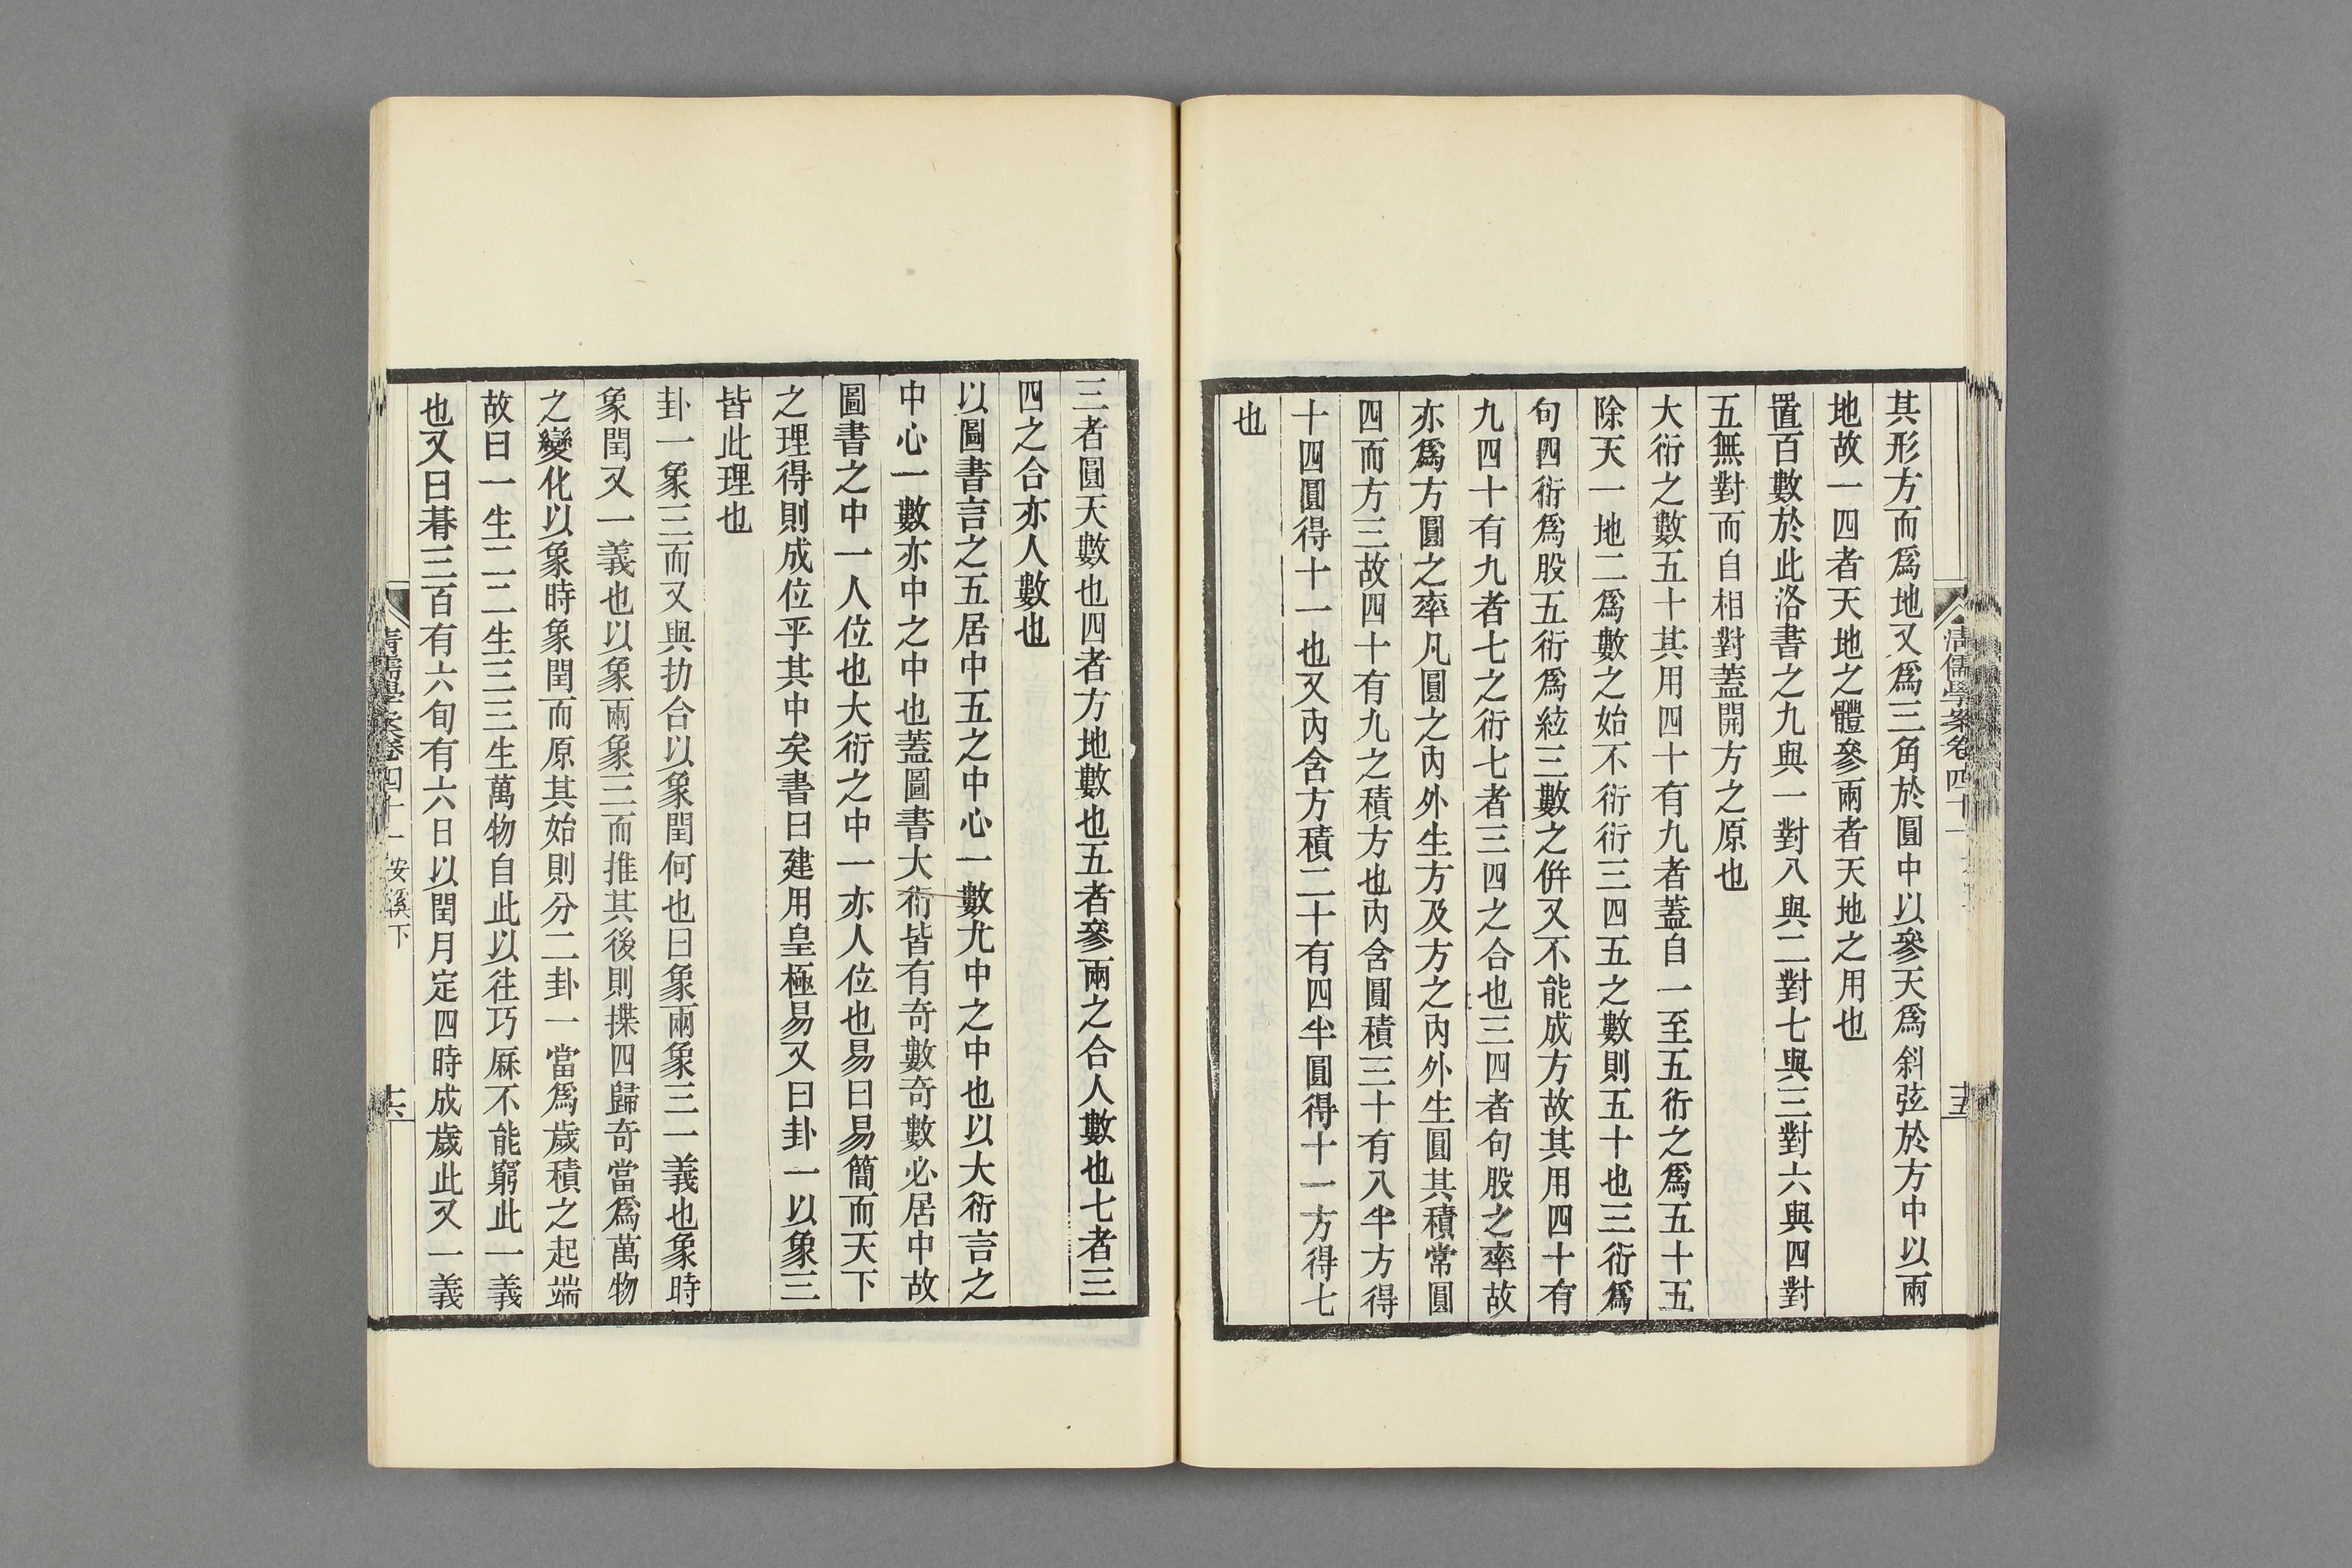 清儒學案卷四十一
十五
其形方而爲地又爲三角於圓中以參天爲斜弦於方中以兩
地故一四者天地之體參兩者天地之用也
置百數於此洛書之九與一對八與二對七與三對六與四對
五無對而自相對蓋開方之原也
大衍之數五十其用四十有九者蓋自一至五衍之爲五十五
除天一地二爲數之始不衍衍三四五之數則五十也三衍爲
句四衍爲股五衍爲絃三數之倂又不能成方故其用四十有
九四十有九者七之衍七者三四之合也三四者句股之率故
亦爲方圓之率凡圓之內外生方及方之內外生圓其積常圓
四而方三故四十有九之積方也內含圓積三十有八半方得
十四圓得十一也又內含方積二十有四半圓得十一方得七
也
三者圓天數也四者方地數也五者參兩之合人數也七者三
四之合亦人數也
以圖書言之五居中五之中心一數尤中之中也以大衍言之
中心一數亦中之中也蓋圖書大衍皆有奇數奇數必居中故
圖書之中一人位也大衍之中一亦人位也易曰易簡而天下
之理得則成位乎其中矣書曰建用皇極易又曰卦一以象三
皆此理也
卦一象三而又與扐合以象閏何也曰象兩象三一義也象時
象閏又一義也以象兩象三而推其後則揲四歸奇當爲萬物
之變化以象時象閏而原其始則分二卦一當爲歲積之起端
故曰一生二二生三三生萬物自此以往巧厤不能窮此一義
也又曰朞三百有六旬有六日以閏月定四時成歲此又一義
清儒學案卷四十一 安溪下
十六